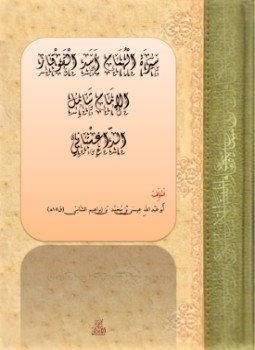 سيرة الهمام أسد القوقاز
الإمام شامل
الداغستاني
تأليف
أبو عبدالله عيسى بن محمد بن إبراهيم الشامي (ق١٥هـ)